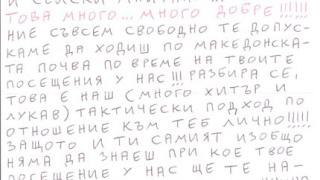 ТОВА МНОГО... МНОГО ДОБРЕ!!!!!!
НИЕ СЪВСЕМ СВОБОДНО ТЕ ДОПУС-
КАМЕ ДА ХОДИШ ПО МАКЕДОНСКА-
ТА ПОЧВА ПО ВРЕМЕ НА ТВОИТЕ
ПОСЕЩЕНИЯ У НАС!!! РАЗБИРА СЕ,
ТОВА Е НАШ (МНОГО ХИТЪР И
ЛУКАВ) ТАКТИЧЕСКИ ПОДХОД ПО
ОТНОШЕНИЕ КЪМ ТЕБ ЛИЧНО!!!!!
ЗАЩОТО И ТИ САМИЯТ ИЗОБЩО
НЯМА ДА ЗНАЕШ ПРИ КОЕ ТВОЕ
ПОСЕЩЕНИЕ У НАС ЩЕ ТЕ НА-